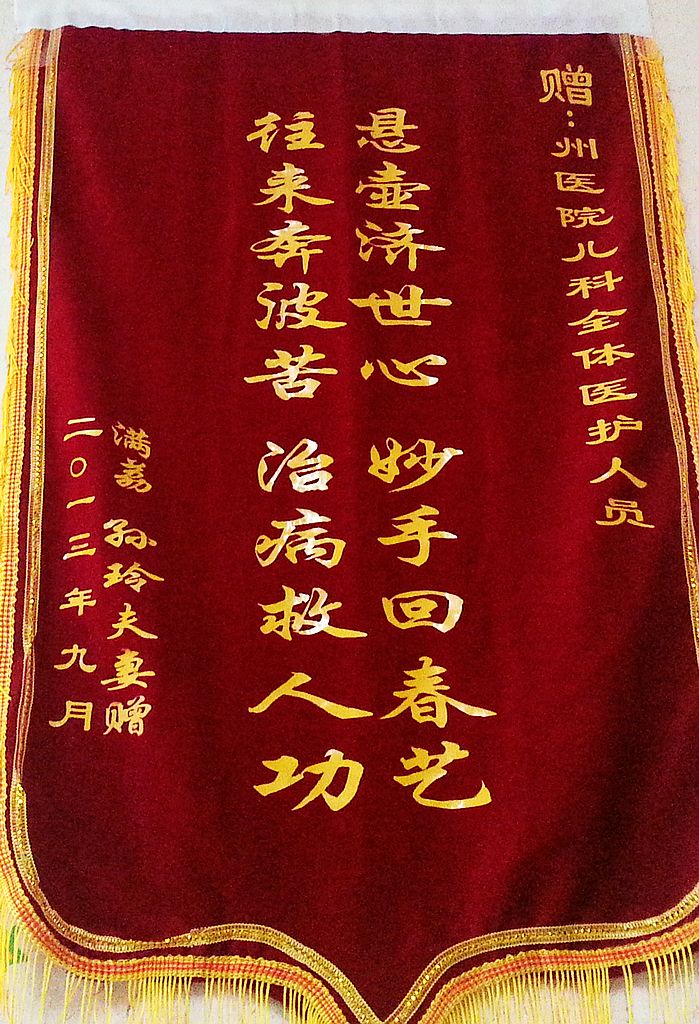 赠:州医院儿科全体医护人员
悬壶济世心 妙手回春艺
往来奔波苦 治病救人功
满荔 孙玲夫妻赠
二〇一三年九月